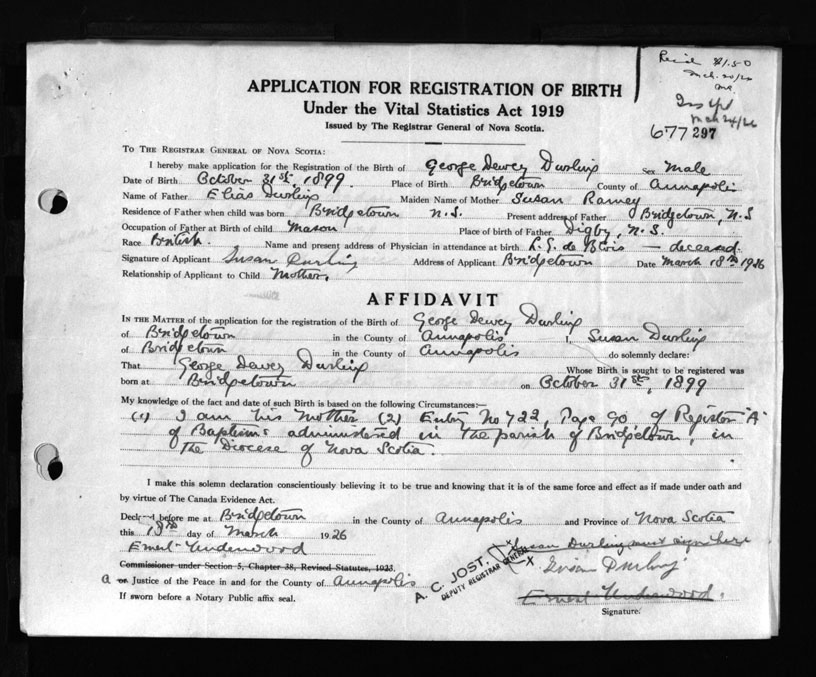 Rec'd $1.50
Mch. 20/26
APPLICATION FOR REGISTRATION OF BIRTH
Under the Vital Statistics Act 1919
Issued by The Registrar General of Nova Scotia.
Mch 24/26
677297
TO THE REGISTRAR GENERAL OF NOVA SCOTIA:
I hereby make application for the Registration of the Birth of George Dewey Durling Sex Male
Date of Birth October 31st, 1899. Place of Birth Bridgetown County of Annapolis
Name of Father Elias Durling Maiden Name of Mother Susan Ramey
Residence of Father when child was born Bridgetown N.S. Present address of Father Bridgetown, N.S
Occupation of Father at Birth of child Mason Place of birth of Father Digby, N.S.
Race British. Name and present address of Physician in attendance at birth L. G. de Blois — deceased.
Signature of Applicant Susan Durling Address of Applicant Bridgetown Date March 18th 1926
Relationship of Applicant to Child Mother.
AFFIDAVIT
IN THE MATTER of the application for the registration of the Birth of George Dewey Durling
of Bridgetown in the County of Annapolis I, Susan Durling
of Bridgetown in the County of Annapolis do solemnly declare:
That George Dewey Durling Whose Birth is sought to be registered was
born at Bridgetown on October 31st, 1899
My knowledge of the fact and date of such Birth is based on the following Circumstances:—
(1) I am his Mother (2) Entry No 722, Page 90 of Register "A"
of Baptisms administered in the parish of Bridgetown, in
the Diocese of Nova Scotia.
I make this solemn declaration conscientiously believing it to be true and knowing that it is of the same force and effect as if made under oath and
by virtue of The Canada Evidence Act.
Declared before me at Bridgetown in the County of Annapolis and Province of Nova Scotia
this 18th day of March 1926
Susan Durling must sign here
Ernest Underwood
Susan Durling
Commissioner under Section 5, Chapter 38, Revised Statutes, 1923.
A. C. JOST.
DEPUTY REGISTRAR GENERAL
a or Justice of the Peace in and for the County of Annapolis
Ernest Underwood.
If sworn before a Notary Public affix seal.
Signature.